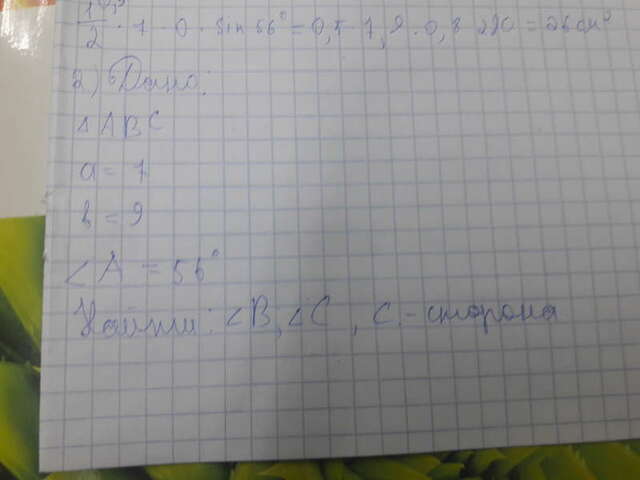 1/2 · 7 · 0 · sin 56° = 0,5 · 7, 9 · 0, 8 290 = 26 см²
2) Дано:
△ABC
a = 7
b = 9
∠A = 56°
Найти: ∠B, ∠C, C - сторона